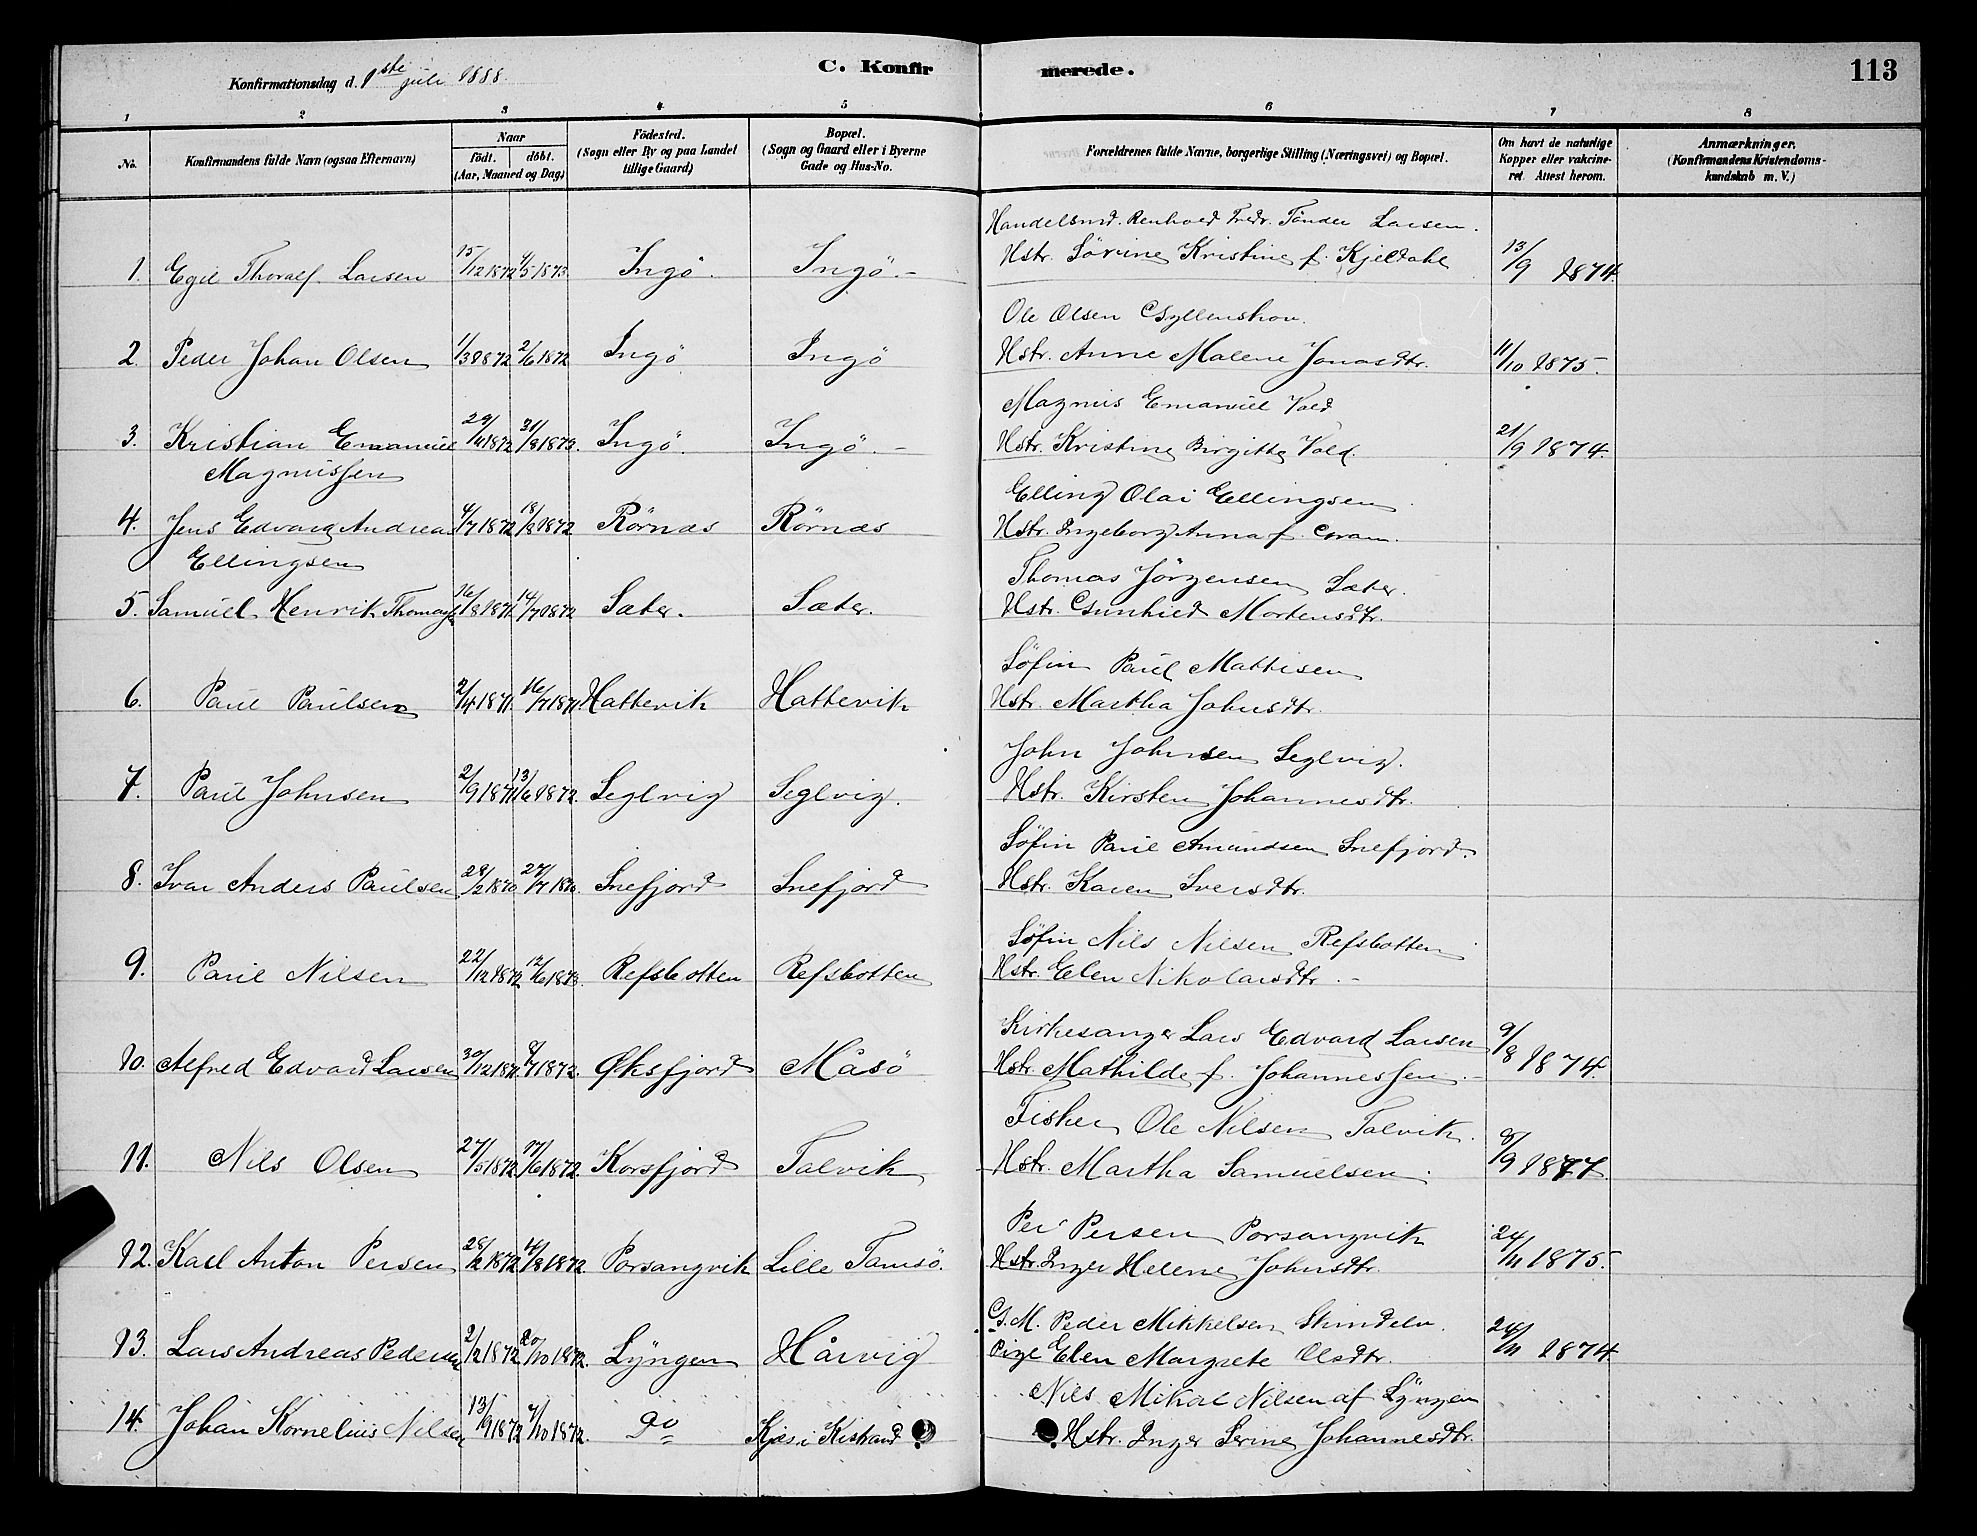 113
Konfirmationsdag d. 1ste juli 1888.
C. Konfirmerede.
1 2 3 4 5 6 7 8
No. Konfirmandens fulde Navn (ogsaa Efternavn)
Naar
födt. döbt.
(Aar, Maaned og Dag)
Födested.
(Sogn eller By og paa Landet
tillige Gaard)
Bopæl.
(Sogn og Gaard eller i Byerne
Gade og Hus-No.
Forældrenes fulde Navne, borgerlige Stilling (Næringsvei) og Bopæl.
Om havt de naturlige
Kopper eller vakcine-
ret. Attest herom.
Anmærkninger.
(Konfirmandens Kristendoms-
kundskab m. V.)
Handelsmd. Renhold Fredr. Tönder Larsen.
1. Egil Thoralf Larsen 15/12 1872 4/5 1873. Ingö. Ingö. Hstr. Sörine Kristine f. Kjeldahl 13/9 1874.
Ole Olsen Gyllenskou.
2. Peder Johan Olsen 1/3 1872 2/6 1872 Ingö Ingö Hstr. Anne Malene Jonasdtr. 11/10 1875.
Magnus Emanuel Vold
3. Kristian Emanuel 31/8 1873. Ingö. Ingö. Hstr. Kristine Birgitte Vold. 21/9 1874.
Magnussen
Elling Olai Ellingsen.
4. Jens Edvard Andreas 4/7 1872 18/8 1872 Rörnæs Rörnæs Hstr. Ingeborg Anna f.
Ellingsen
Thomas Jörgensen Sæter.
5. Samuel Henrik Thomas 16/8 1871 14/7 1872 Sæter. Sæter. Hstr. Gunhild Mortensdtr.
Söfin Paul Mathisen
6. Paul Paulsen 2/4 1871 16/7 1871 Hattevik Hattevik Hstr. Martha Johnsdtr.
John Johnsen Seglvig.
7. Paul Johnsen 2/9 1871 13/6 1872. Seglvig Seglvig. Hstr. Kirsten Johannesdtr.
Söfin Paul Amundsen Snefjord.
8. Ivar Anders Paulsen 27/7 1870. Snefjord Snefjord Hstr. Karen Iversdtr.
Söfin Nils Nilsen Refsbotten
9. Paul Nilsen 22/12 1872 12/6 1873. Refsbotten Refsbotten Hstr. Elen Nikolaisdtr.
Kirkesanger Lars Edvard Larsen
10. Alfred Edvard Larsen 30/12 1871. 1872. Øksfjord Måsö Hstr. Mathilde f. Johannessen. 9/8 1874.
Fisker Ole Nilsen Talvik.
11. Nils Olsen 27/5 1872 17/6 1872. Korsfjord Talvik Hstr. Martha Samuelsen. 8/9 1877
Per Persen Porsangvik
12. Karl Anton Persen 28/2 1872 1872. Porsangvik Lille Tamsö. Hstr. Inger Helene Johnsdtr. 24/11 1875.
G.M. Peder Mikkelsen
13. Lars Andreas Pedersen 2/2 1872 20/10 1872. Lyngen Hårvig Pige Elen Margrete Olsdtr. 24/11 1874
Nils Mikal Nilsen af Lyngen
14. Johan Kornelius Nilsen 13/9 1872 7/10 1872. Do Kjæs i Kistrand Hstr. Inger Serine Johannesdtr.